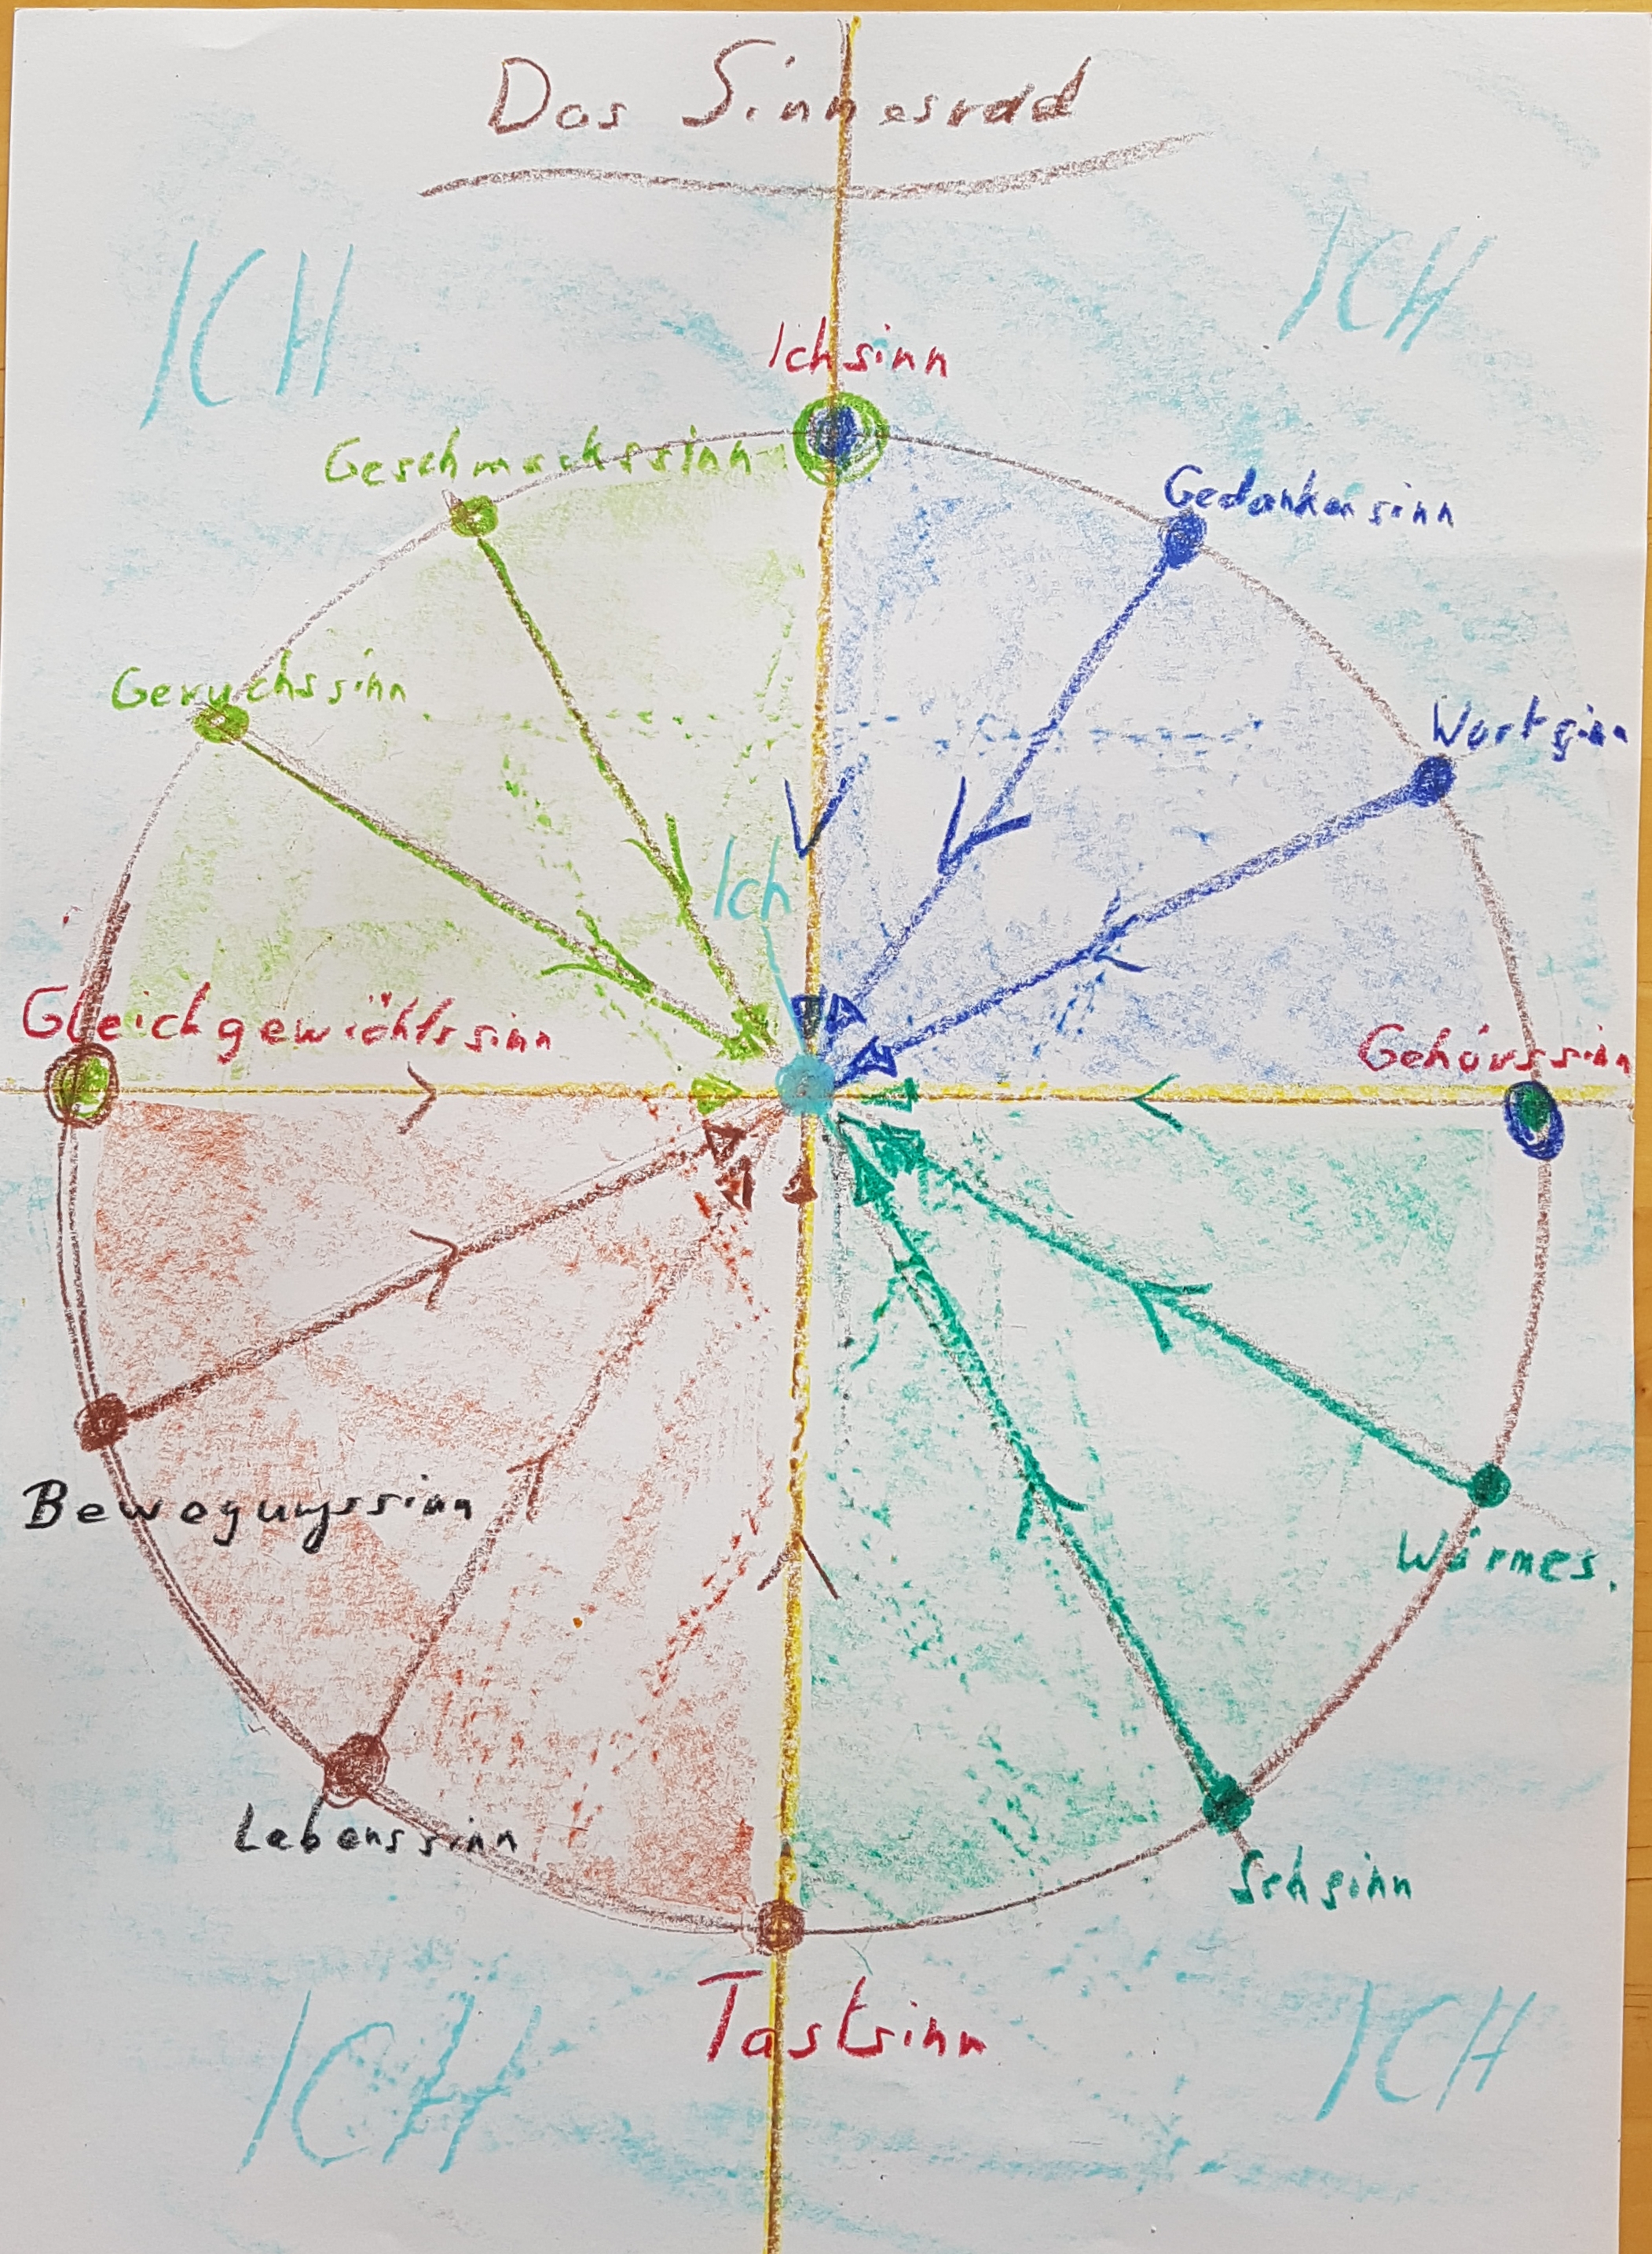 Das Sinnesrad
ICH
ICH
Ichsinn
Geschmackssinn
Gedankensinn
Geruchssinn
Wortsinn
Ich
Gleichgewichtssinn
Gehörssinn
Bewegungssinn
Wärmes.
Lebenssinn
Sehsinn
Tastsinn
ICH
ICH